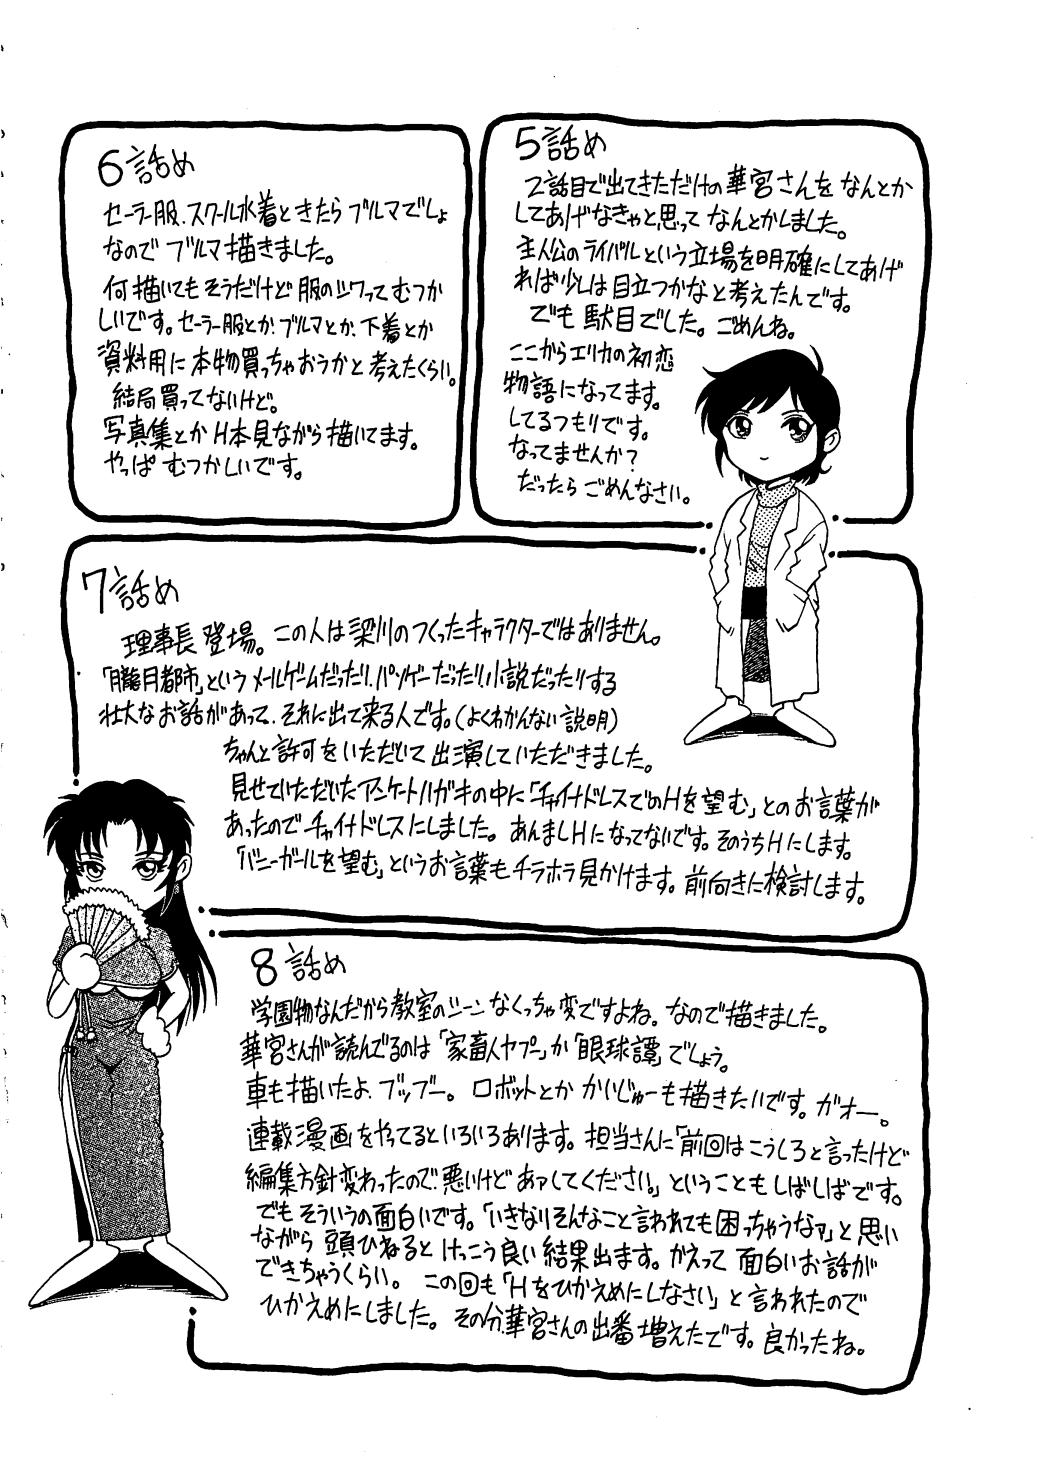 5話め
2話目で出てきただけの華宮さんをなんとか
してあげなきゃと思ってなんとかしました。
主人公のライバルという立場を明確にしてあげ
れば少しは目立つかなと考えたんです。
でも駄目でした。ごめんね。
ここからエリカの初恋
物語になってます。
してるつもりです。
なってませんか？
だったらごめんなさい。
6話め
セーラー服、スクール水着ときたらブルマでしょ
なのでブルマ描きました。
何描いてもそうだけど服のシワってむつか
しいです。セーラー服とか、ブルマとか、下着とか
資料用に本物買っちゃおうかと考えたくらい。
結局買ってないけど。
写真集とかH本見ながら描いてます。
やっぱむつかしいです。
7話め
理事長登場。この人は梁川のつくったキャラクターではありません。
「朧月都市」というメールゲームだったり、パソゲーだったり、小説だったりする
壮大なお話があって、それに出て来る人です。(よくわかんない説明)
ちゃんと許可をいただいて出演していただきました。
見せていただいたアンケートハガキの中に「チャイナドレスでのHを望む」とのお言葉が
あったのでチャイナドレスにしました。あんましHになってないです。そのうちHにします。
「バニーガールを望む」というお言葉もチラホラ見かけます。前向きに検討します。
8話め
学園物なんだから教室のシーンなくっちゃ変ですよね。なので描きました。
華宮さんが読んでるのは「家畜人ヤプー」か「眼球譚」でしょう。
車も描いたよ、ブッブー。ロボットとかかいじゅーも描きたいです。ガオー。
連載漫画をやってるといろいろあります。担当さんに「前回はこうしろと言ったけど
編集方針変わったので、悪いけどあァしてください。」ということもしばしばです。
でもそういうの面白いです。「いきなりそんなこと言われても困っちゃうなァ」と思い
ながら頭ひねるとけっこう良い結果出ます。かえって面白いお話が
できちゃうくらい。この回も「Hをひかえめにしなさい」と言われたので
ひかえめにしました。その分、華宮さんの出番増えたです。良かったね。